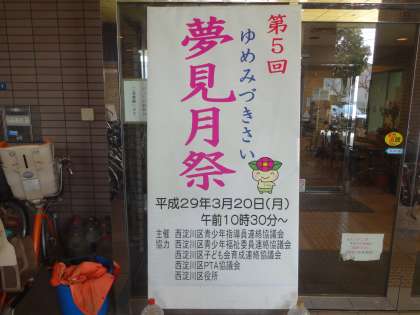 第5回
ゆめみづきさい
夢見月祭
平成29年3月20日(月)
午前10時30分～
主催 西淀川区青少年指導員連絡協議会
協力 西淀川区青少年福祉委員連絡協議会
西淀川区子ども会育成連絡協議会
西淀川区PTA協議会
西淀川区役所